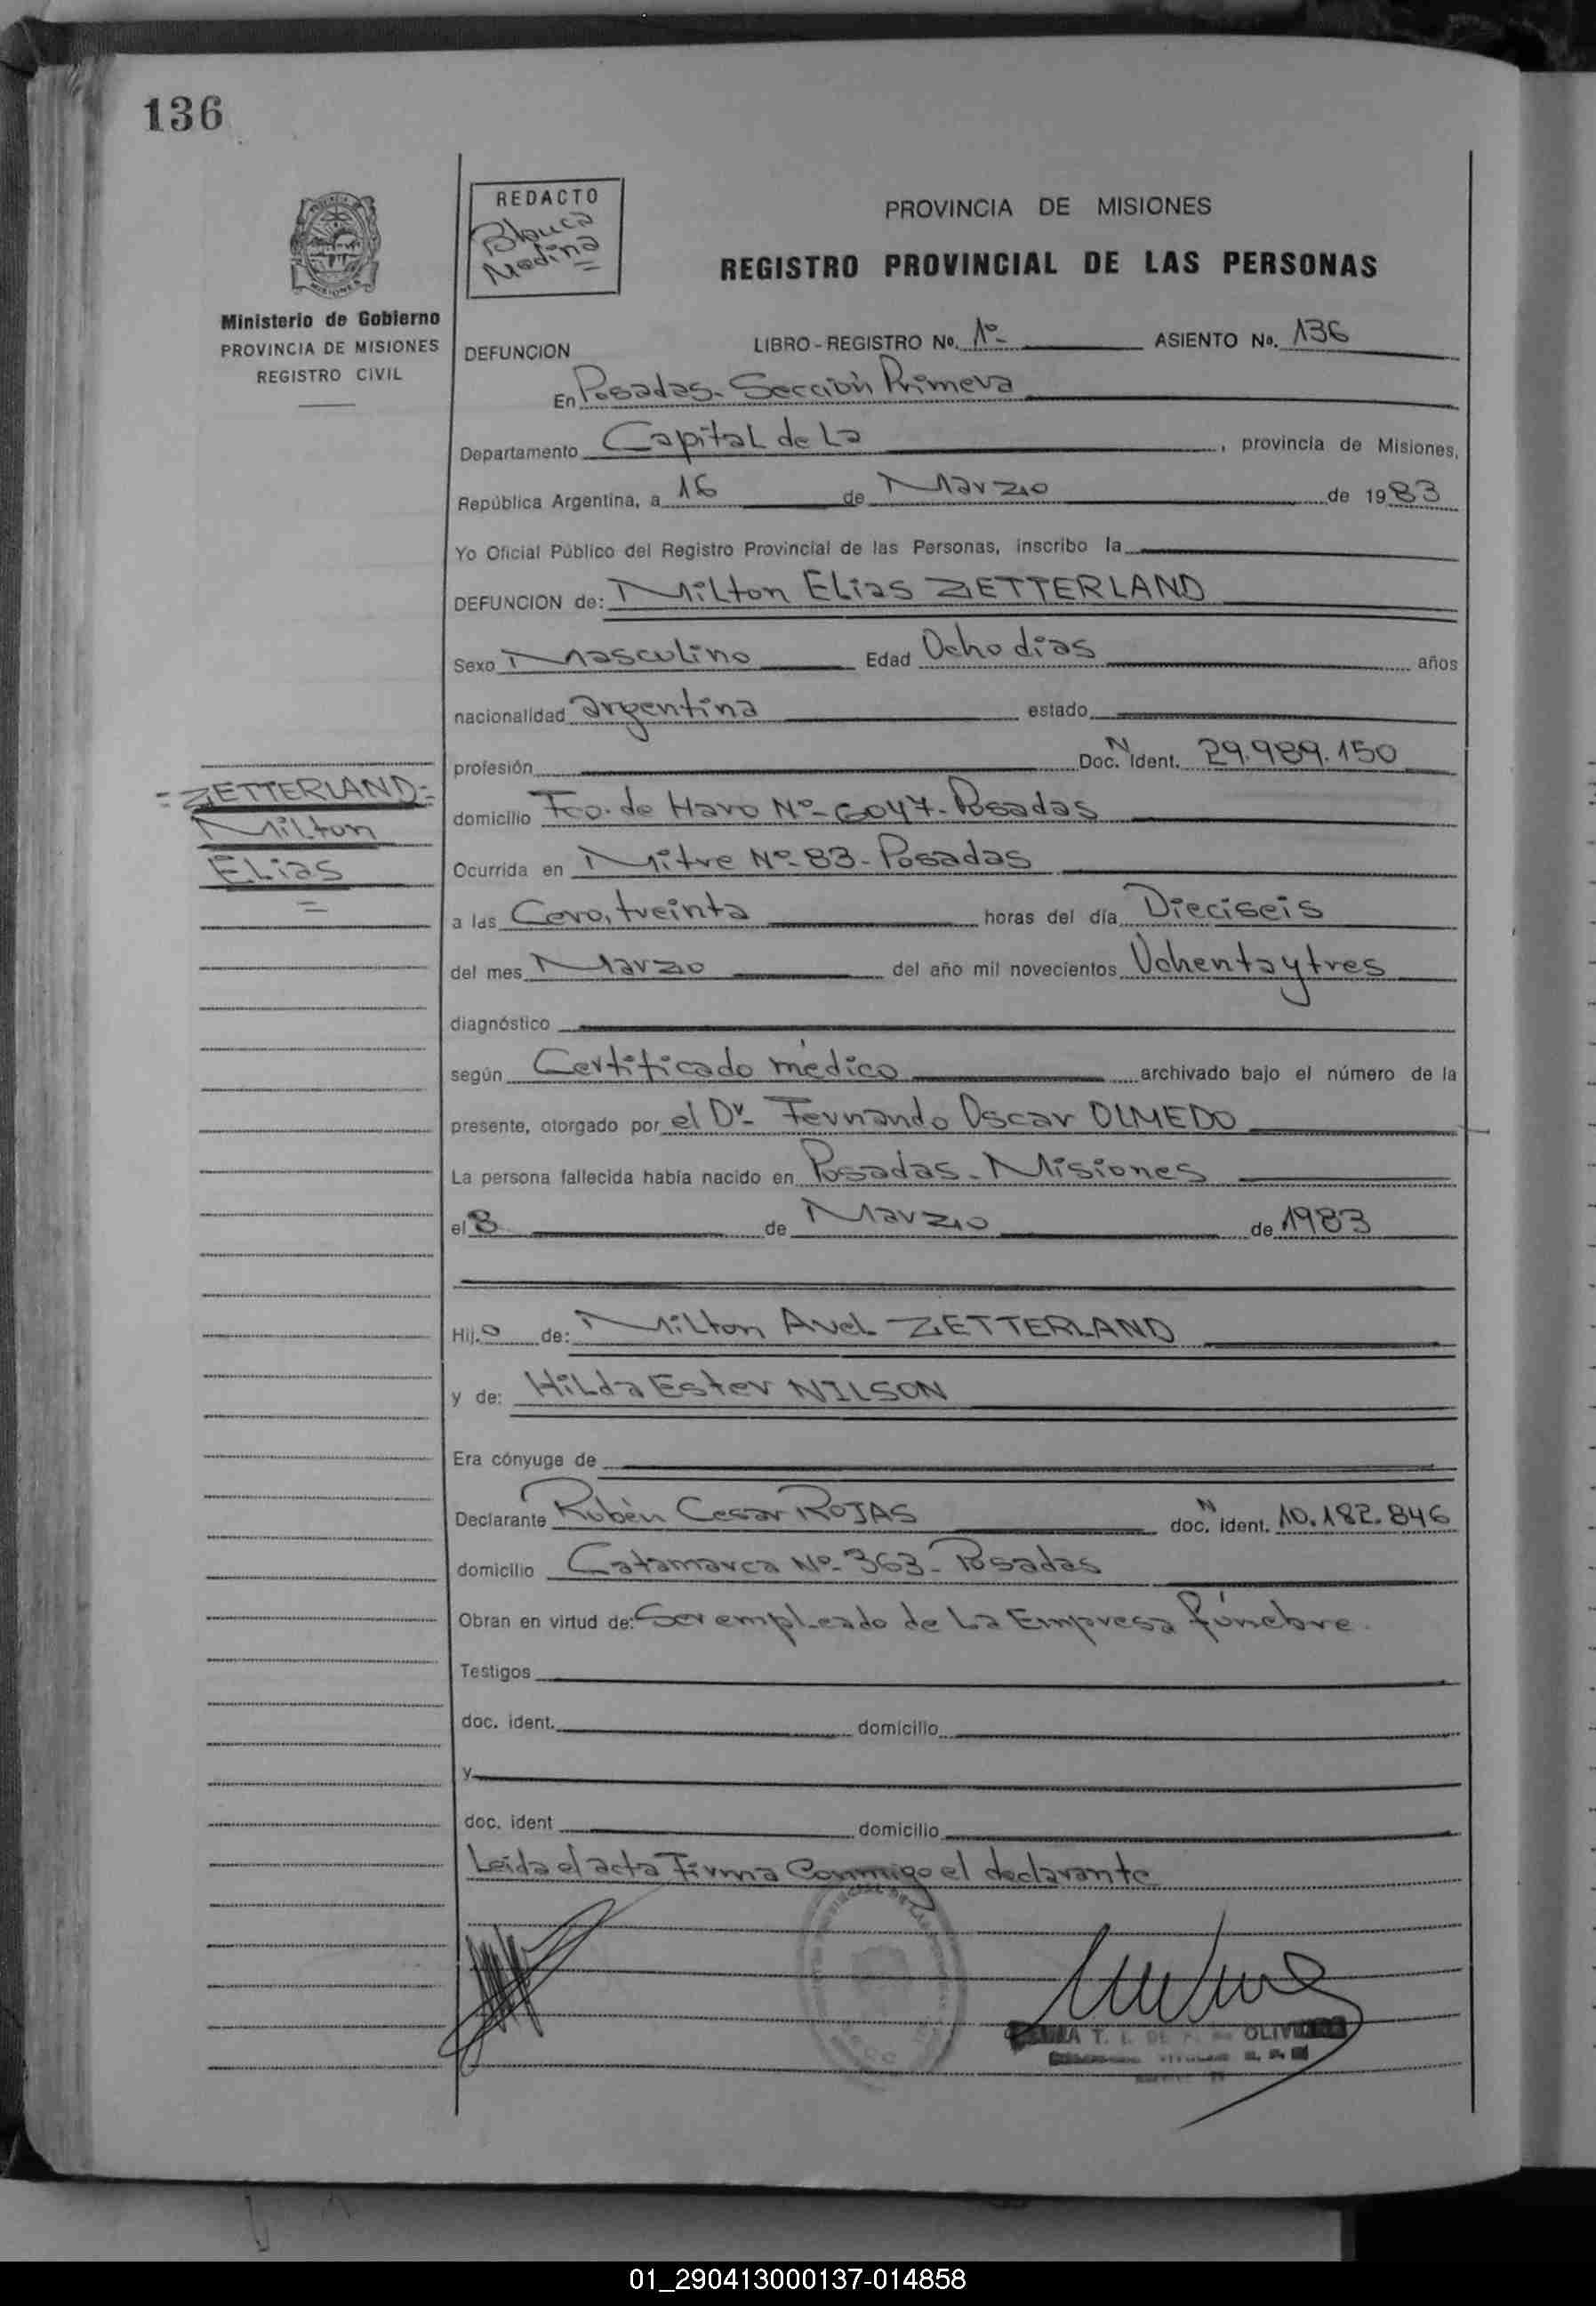 136
REDACTO
Blanca
Medina
Ministerio de Gobierno
PROVINCIA DE MISIONES
REGISTRO CIVIL
PROVINCIA DE MISIONES
REGISTRO PROVINCIAL DE LAS PERSONAS
DEFUNCION LIBRO - REGISTRO No. 1º ASIENTO No. 136
En Posadas - Sección Primera
Departamento Capital de La , provincia de Misiones,
República Argentina, a 16 de Marzo de 1983
Yo Oficial Público del Registro Provincial de las Personas, inscribo la
DEFUNCION de: Milton Elias ZETTERLAND
Sexo Masculino Edad Ocho dias años
nacionalidad argentina estado
profesión Doc. N Ident. 29.989.150
= ZETTERLAND =
Milton
Elias
domicilio Fco. de Haro Nº 6047 - Posadas
Ocurrida en Mitre Nº 83 - Posadas
a las Cero, treinta horas del día Dieciseis
del mes Marzo del año mil novecientos Ochenta y tres
diagnóstico
según Certificado médico archivado bajo el número de la
presente, otorgado por el Dr. Fernando Oscar OLMEDO
La persona fallecida había nacido en Posadas - Misiones
el 8 de Marzo de 1983
Hij o de: Milton Avel ZETTERLAND
y de: Hilda Ester NILSON
Era cónyuge de
Declarante Rubén Cesar ROJAS doc. N ident. 10.182.846
domicilio Catamarca Nº 363 - Posadas
Obran en virtud de: Ser empleado de la Empresa fúnebre.
Testigos
doc. ident. domicilio
y
doc. ident domicilio
Leida el acta Firma Conmigo el declarante
01_290413000137-014858